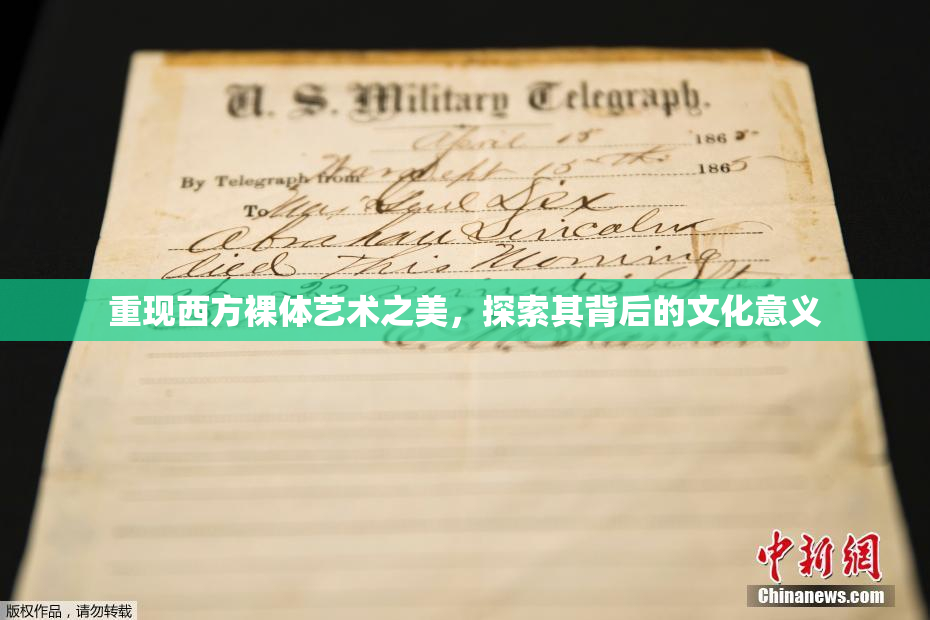 U. S. Military Telegraph.
April 15 1865
By Telegraph from War Dept 15th 1865
To Maj Genl Dix
Abraham Lincoln
died This Morning
at 22 minutes after
重现西方裸体艺术之美，探索其背后的文化意义
中新网
Chinanews.com
版权作品，请勿转载